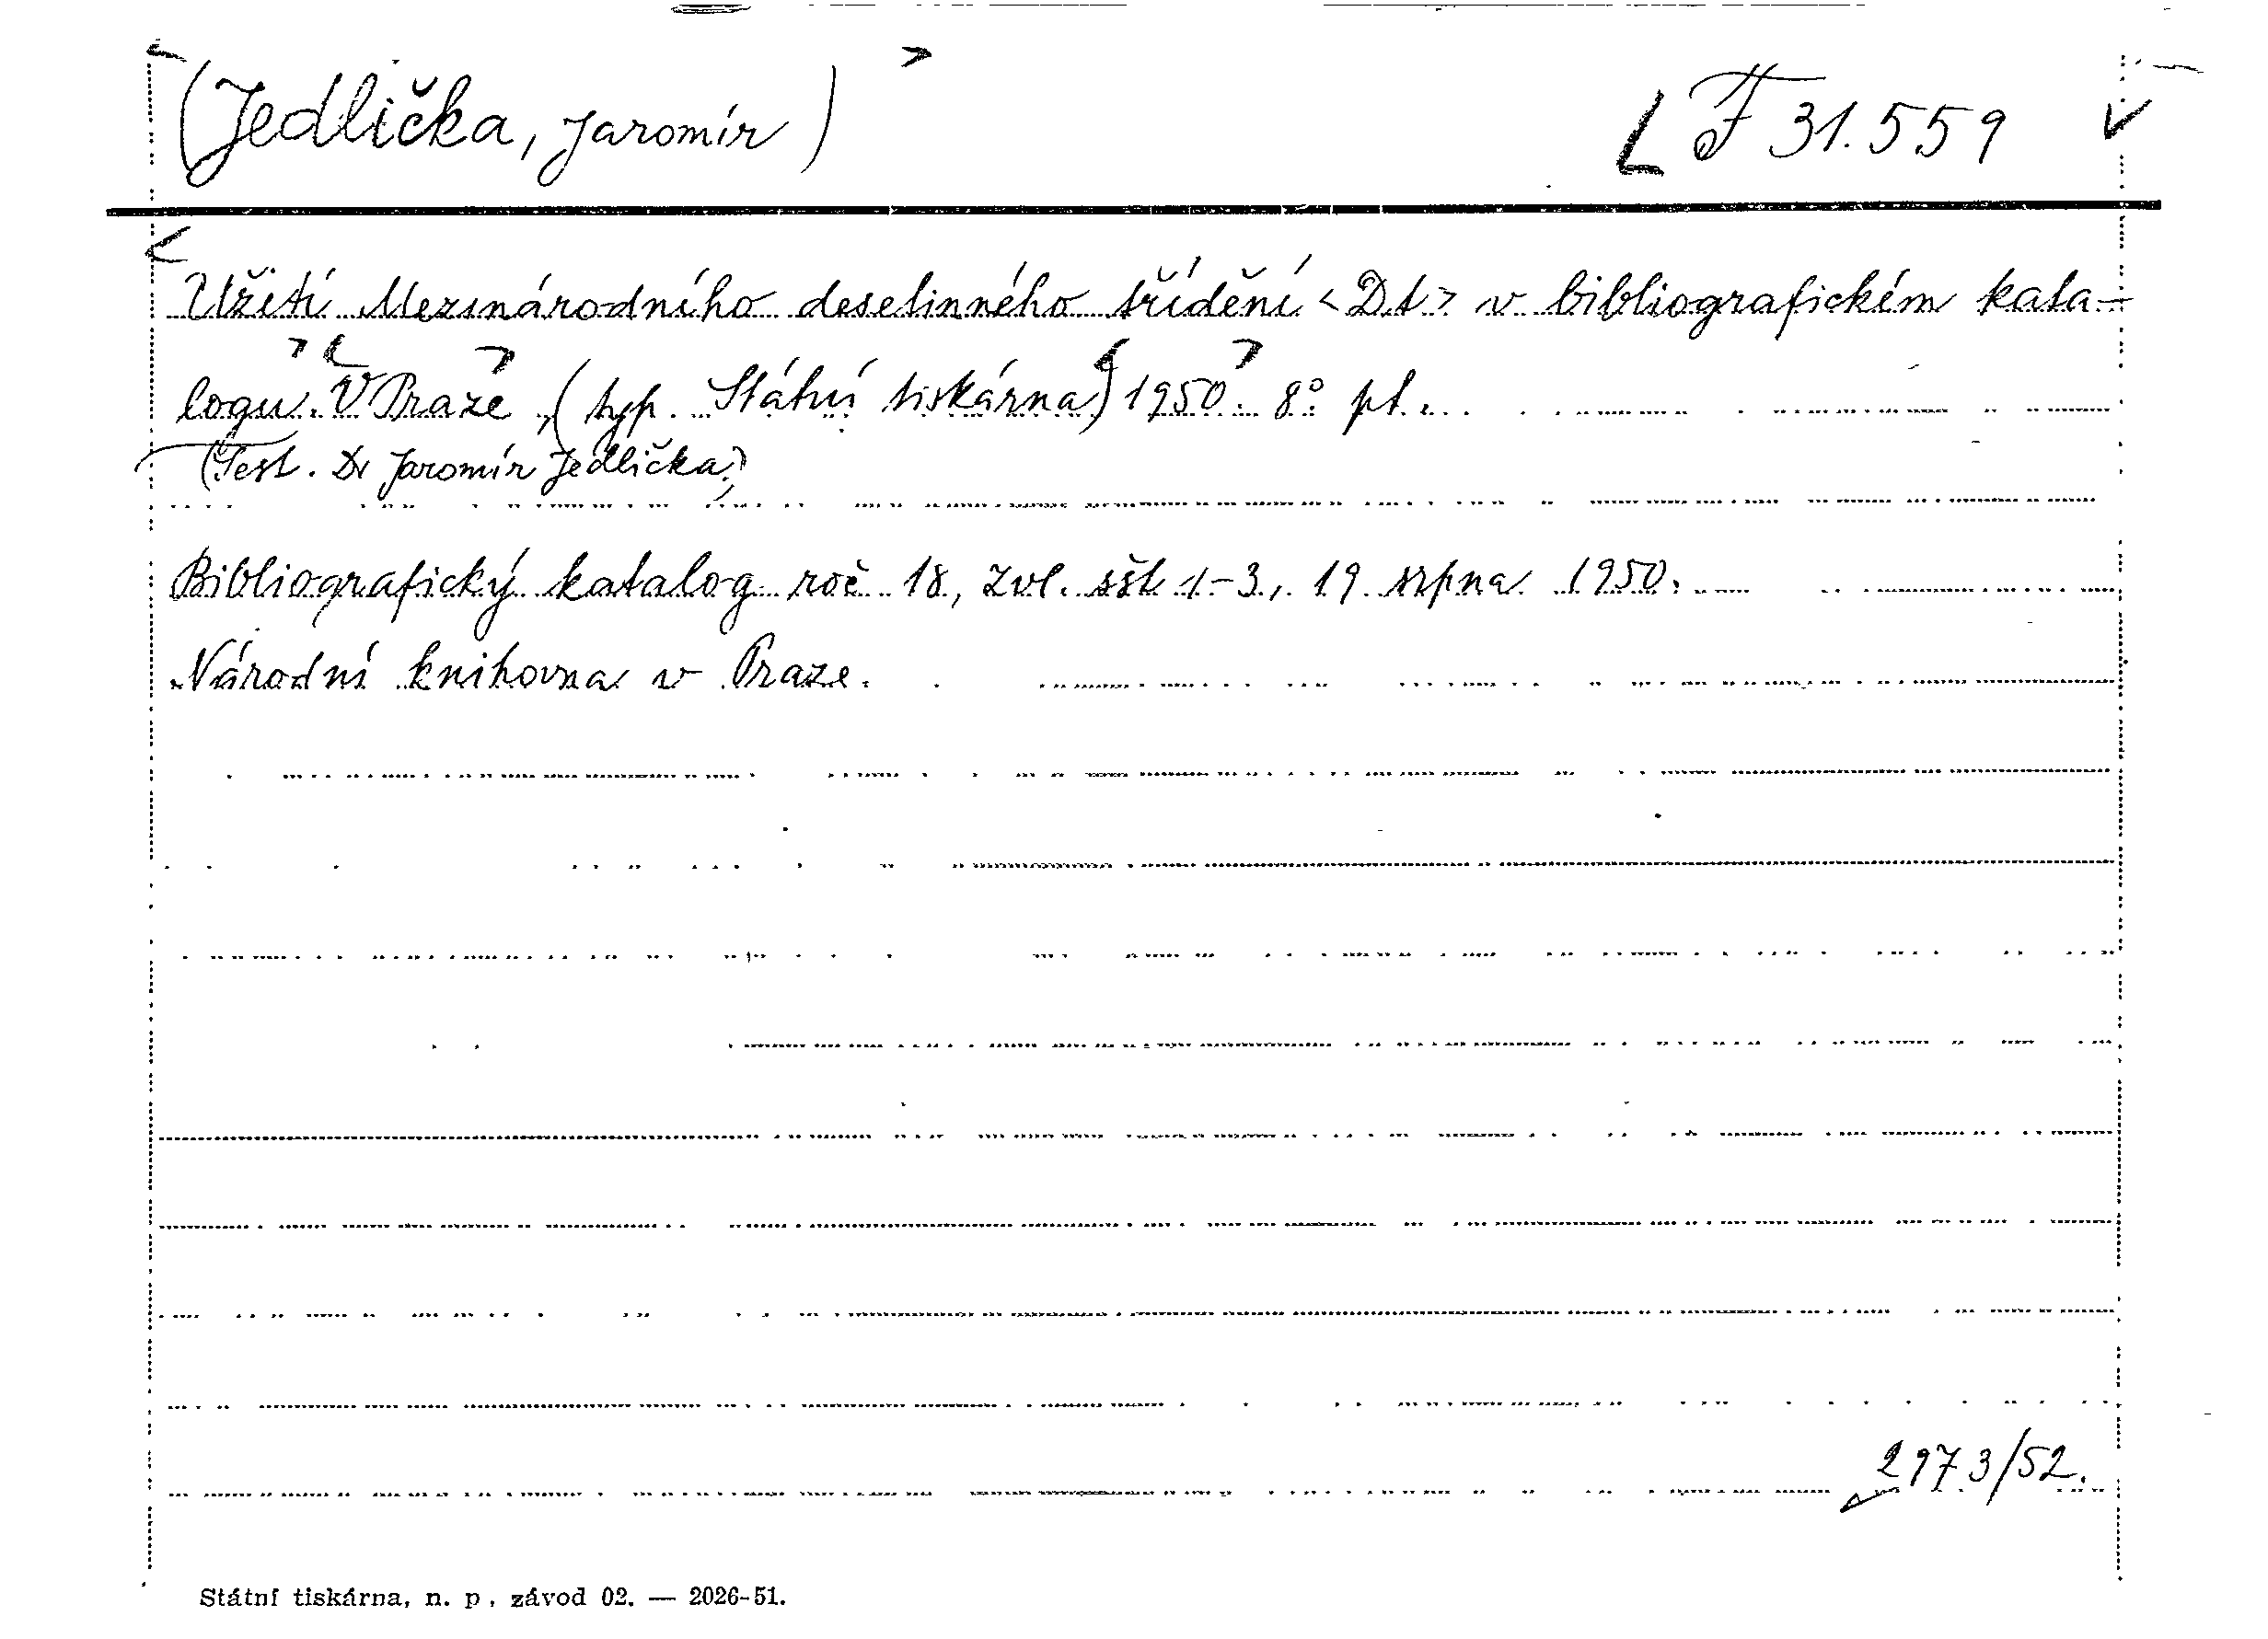 (Jedlička, Jaromír) F 31.559
Užití Mezinárodního desetinného třídění <Dt> v bibliografickém kata-
logu. V Praze, (typ. Státní tiskárna) 1950. 8° pt.
(Sest. Dr Jaromír Jedlička.)
Bibliografický katalog roč 18, zvl. sšt 1-3, 19. srpna 1950.
Národní knihovna v Praze.
2973/52.
Státní tiskárna, n. p., závod 02. — 2026-51.